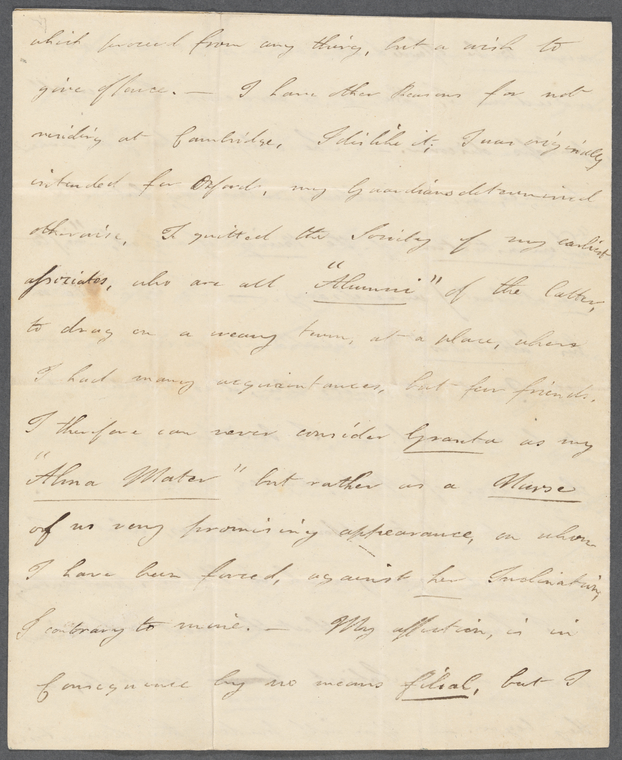 which proceed from any thing, but a wish to
give offence. — I have other Reasons for not
residing at Cambridge, I dislike it; I was originally
intended for Oxford, my Guardians determined
otherwise. I quitted the Society of my earliest
associates, who are all "Alumni" of the latter,
to drag on a weary term, at a place, where
I had many acquaintances, but few friends.
I therefore can never consider Granta as my
"Alma Mater" but rather as a Nurse
of no very promising appearance, on whom
I have been forced, against her Inclination,
& contrary to mine. — My affection, is in
Consequence by no means filial, but I